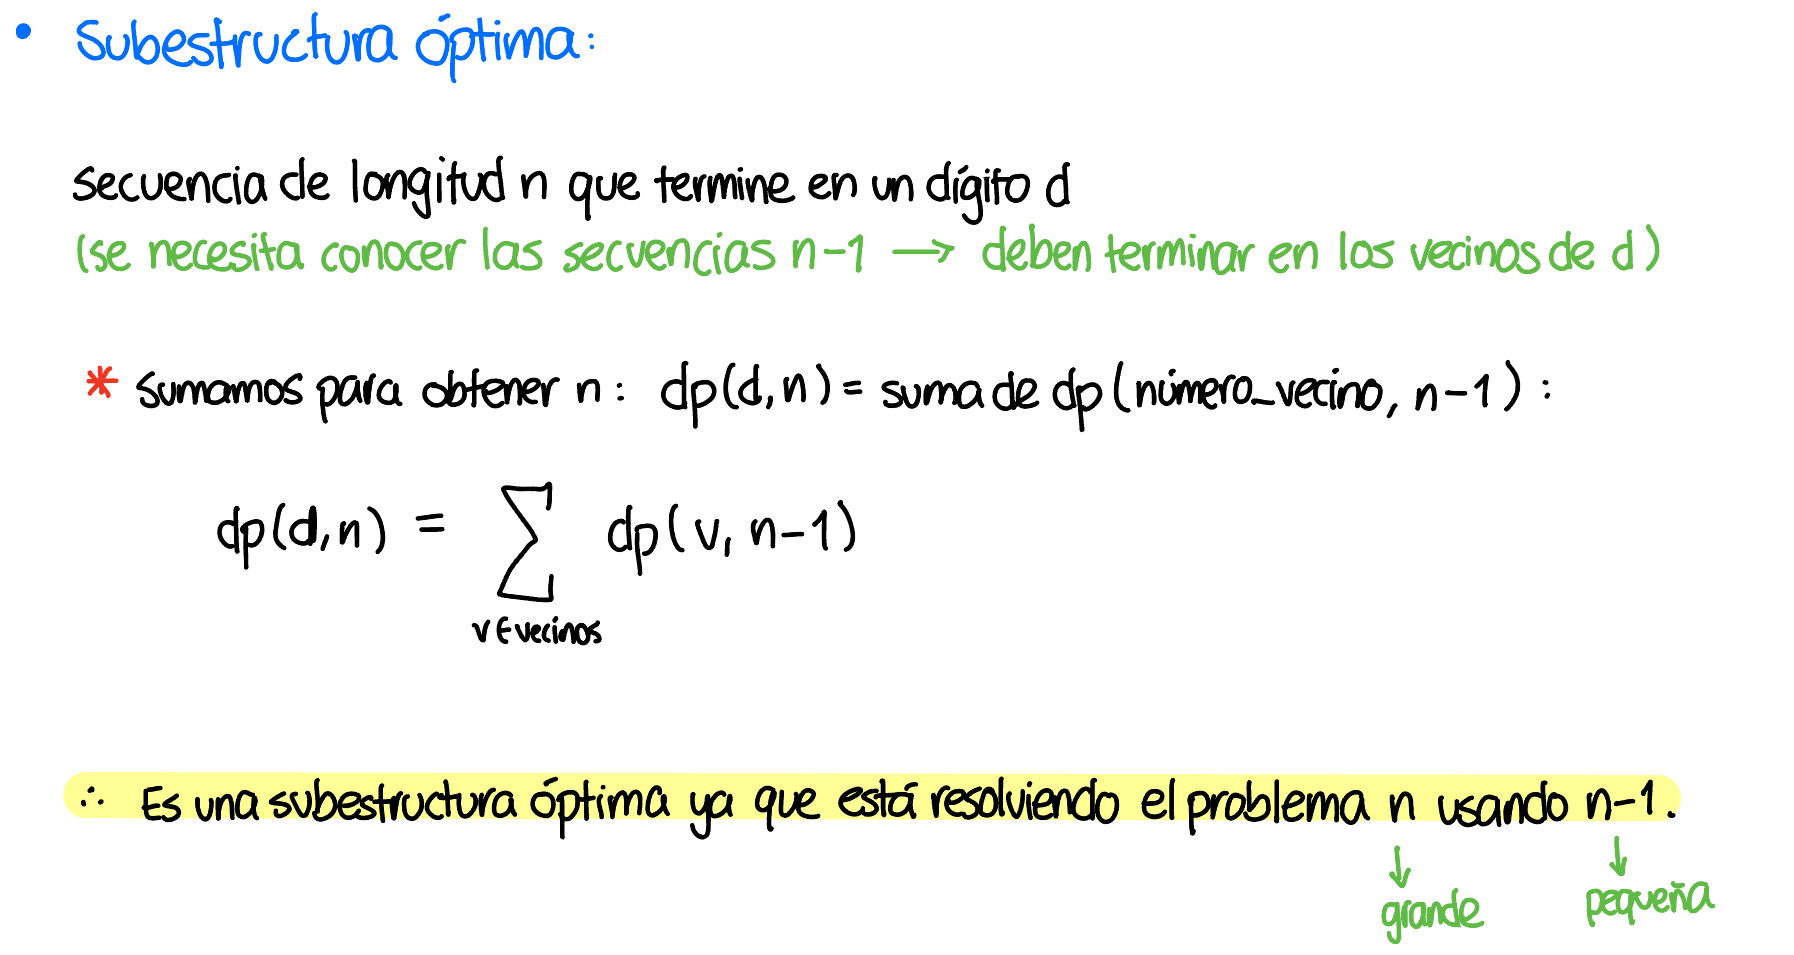 • Subestructura óptima:
secuencia de longitud n que termine en un dígito d
(se necesita conocer las secuencias n-1 → deben terminar en los vecinos de d)
* Sumamos para obtener n: dp(d,n) = suma de dp(número_vecino, n-1):
dp(d,n) = ∑ dp(v, n-1)
v ∈ vecinos
∴ Es una subestructura óptima ya que está resolviendo el problema n usando n-1.
↓ ↓
grande pequeña